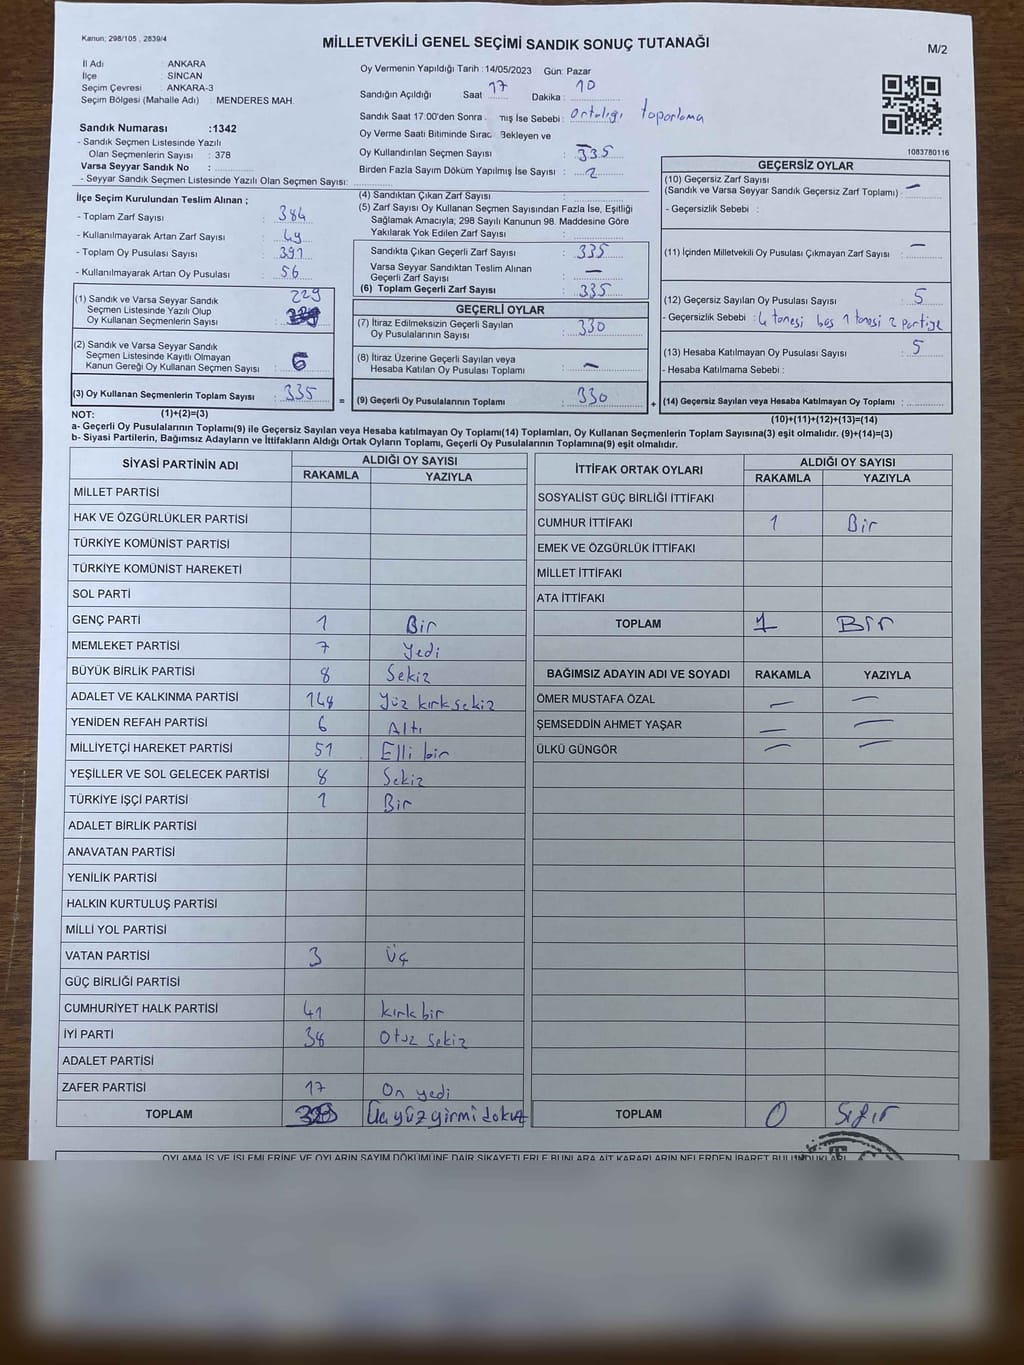 Kanun; 298/105 , 2839/4
MİLLETVEKİLİ GENEL SEÇİMİ SANDIK SONUÇ TUTANAĞI
M/2
İl Adı : ANKARA
İlçe : SİNCAN
Seçim Çevresi : ANKARA-3
Seçim Bölgesi (Mahalle Adı) : MENDERES MAH.
Sandık Numarası :1342
- Sandık Seçmen Listesinde Yazılı
Olan Seçmenlerin Sayısı : 378
Varsa Seyyar Sandık No :
- Seyyar Sandık Seçmen Listesinde Yazılı Olan Seçmen Sayısı:
Oy Vermenin Yapıldığı Tarih :14/05/2023 Gün: Pazar
Sandığın Açıldığı Saat 17 Dakika : 10
Sandık Saat 17:00'den Sonra mış İse Sebebi : ortalığı toparlama
Oy Verme Saati Bitiminde Sırada Bekleyen ve
Oy Kullandırılan Seçmen Sayısı : 335
Birden Fazla Sayım Döküm Yapılmış İse Sayısı : 2
1083780116
İlçe Seçim Kurulundan Teslim Alınan ;
- Toplam Zarf Sayısı : 384
- Kullanılmayarak Artan Zarf Sayısı : 49
- Toplam Oy Pusulası Sayısı : 391
- Kullanılmayarak Artan Oy Pusulası : 56
(1) Sandık ve Varsa Seyyar Sandık
Seçmen Listesinde Yazılı Olup
Oy Kullanan Seçmenlerin Sayısı : 229
(2) Sandık ve Varsa Seyyar Sandık
Seçmen Listesinde Kayıtlı Olmayan
Kanun Gereği Oy Kullanan Seçmen Sayısı : 6
(3) Oy Kullanan Seçmenlerin Toplam Sayısı : 335
(1)+(2)=(3)
(4) Sandıktan Çıkan Zarf Sayısı :
(5) Zarf Sayısı Oy Kullanan Seçmen Sayısından Fazla İse, Eşitliği
Sağlamak Amacıyla; 298 Sayılı Kanunun 98. Maddesine Göre
Yakılarak Yok Edilen Zarf Sayısı :
Sandıkta Çıkan Geçerli Zarf Sayısı : 335
Varsa Seyyar Sandıktan Teslim Alınan
Geçerli Zarf Sayısı : —
(6) Toplam Geçerli Zarf Sayısı : 335
GEÇERLİ OYLAR
(7) İtiraz Edilmeksizin Geçerli Sayılan
Oy Pusulalarının Sayısı : 330
(8) İtiraz Üzerine Geçerli Sayılan veya
Hesaba Katılan Oy Pusulası Toplamı : —
= (9) Geçerli Oy Pusulalarının Toplamı : 330 +
GEÇERSİZ OYLAR
(10) Geçersiz Zarf Sayısı
(Sandık ve Varsa Seyyar Sandık Geçersiz Zarf Toplamı) : —
- Geçersizlik Sebebi :
(11) İçinden Milletvekili Oy Pusulası Çıkmayan Zarf Sayısı : —
(12) Geçersiz Sayılan Oy Pusulası Sayısı : 5
- Geçersizlik Sebebi : 4 tanesi boş 1 tanesi 2 partiye
(13) Hesaba Katılmayan Oy Pusulası Sayısı : 5
- Hesaba Katılmama Sebebi :
(14) Geçersiz Sayılan veya Hesaba Katılmayan Oy Toplamı :
(10)+(11)+(12)+(13)=(14)
NOT:
a- Geçerli Oy Pusulalarının Toplamı(9) ile Geçersiz Sayılan veya Hesaba katılmayan Oy Toplamı(14) Toplamları, Oy Kullanan Seçmenlerin Toplam Sayısına(3) eşit olmalıdır. (9)+(14)=(3)
b- Siyasi Partilerin, Bağımsız Adayların ve İttifakların Aldığı Ortak Oyların Toplamı, Geçerli Oy Pusulalarının Toplamına(9) eşit olmalıdır.
SİYASİ PARTİNİN ADI ALDIĞI OY SAYISI
RAKAMLA YAZIYLA
MİLLET PARTİSİ
HAK VE ÖZGÜRLÜKLER PARTİSİ
TÜRKİYE KOMÜNİST PARTİSİ
TÜRKİYE KOMÜNİST HAREKETİ
SOL PARTİ
GENÇ PARTİ 1 Bir
MEMLEKET PARTİSİ 7 Yedi
BÜYÜK BİRLİK PARTİSİ 8 Sekiz
ADALET VE KALKINMA PARTİSİ 148 Yüz kırk sekiz
YENİDEN REFAH PARTİSİ 6 Altı
MİLLİYETÇİ HAREKET PARTİSİ 51 Elli bir
YEŞİLLER VE SOL GELECEK PARTİSİ 8 Sekiz
TÜRKİYE İŞÇİ PARTİSİ 1 Bir
ADALET BİRLİK PARTİSİ
ANAVATAN PARTİSİ
YENİLİK PARTİSİ
HALKIN KURTULUŞ PARTİSİ
MİLLİ YOL PARTİSİ
VATAN PARTİSİ 3 Üç
GÜÇ BİRLİĞİ PARTİSİ
CUMHURİYET HALK PARTİSİ 41 kırk bir
İYİ PARTİ 38 Otuz sekiz
ADALET PARTİSİ
ZAFER PARTİSİ 17 On yedi
TOPLAM Üç yüz yirmi dokuz
İTTİFAK ORTAK OYLARI ALDIĞI OY SAYISI
RAKAMLA YAZIYLA
SOSYALİST GÜÇ BİRLİĞİ İTTİFAKI
CUMHUR İTTİFAKI 1 Bir
EMEK VE ÖZGÜRLÜK İTTİFAKI
MİLLET İTTİFAKI
ATA İTTİFAKI
TOPLAM 1 Bir
BAĞIMSIZ ADAYIN ADI VE SOYADI RAKAMLA YAZIYLA
ÖMER MUSTAFA ÖZAL — —
ŞEMSEDDİN AHMET YAŞAR — —
ÜLKÜ GÜNGÖR — —
TOPLAM 0 Sıfır
OYLAMA İŞ VE İŞLEMLERİNE VE OYLARIN SAYIM DÖKÜMÜNE DAİR ŞİKAYETLERLE BUNLARA AİT KARARLARIN NELERDEN İBARET BULUNDUKLARI